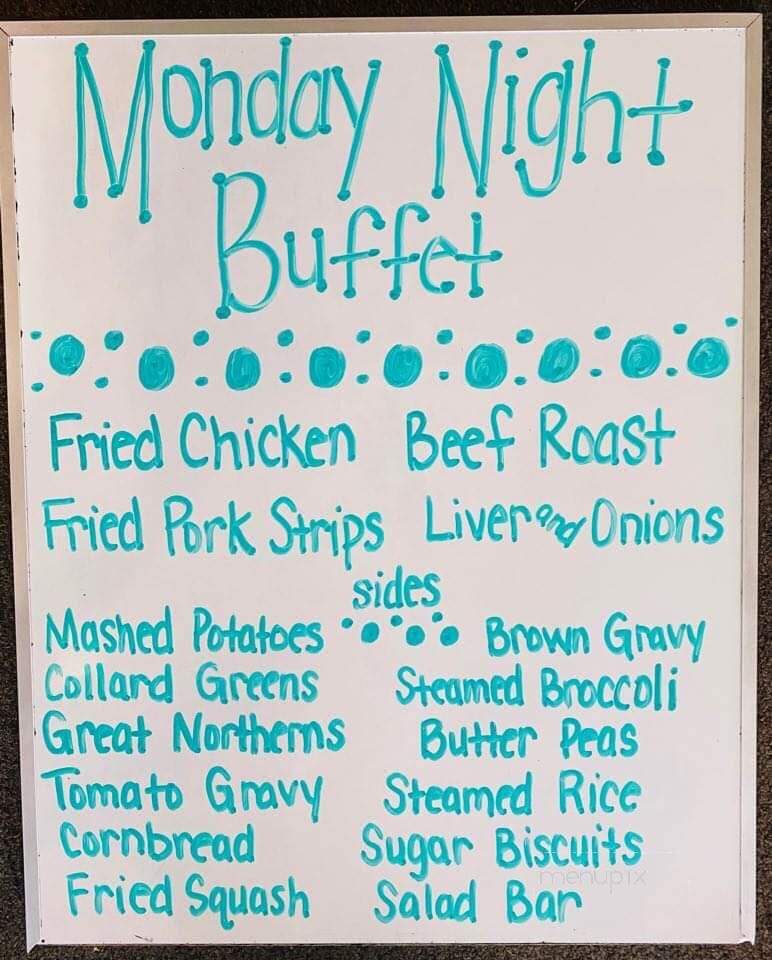 Monday Night
Buffet
Fried Chicken Beef Roast
Fried Pork Strips Liver and Onions
sides
Mashed Potatoes Brown Gravy
Collard Greens Steamed Broccoli
Great Northerns Butter Peas
Tomato Gravy Steamed Rice
Cornbread Sugar Biscuits
menupix
Fried Squash Salad Bar